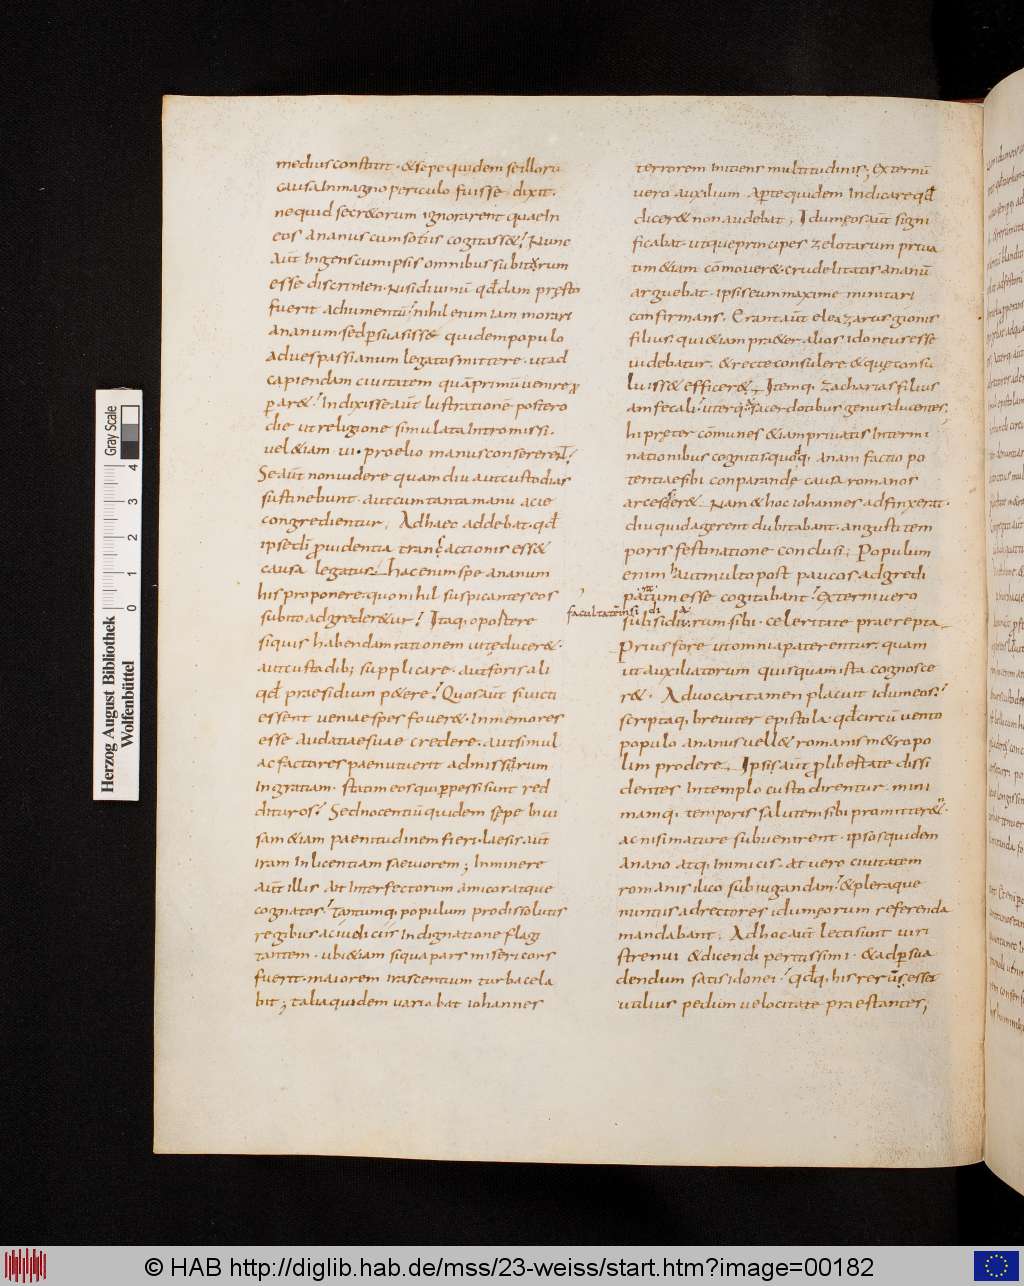 medius constitit · & sepe quidem se illorū
causa In magno periculo fuisse dixit ·
ne quid secr&orum ignorarent quae In
eos ananus cum sociis cogitass& ; Nunc
aūt Ingens cum ipsis omnibus subiturum
esse discrimen · Nisi diuinū qđdam pręsto
fuerit adiumentū ; nihil enim iam morari
ananum · sed psuasiss& quidem populo
ad uespassianum legatos mittere · ut ad
capiendam ciuitatem quāprimū uenire p
par& ; Indixisse aūt lustrationē postero
die ut religione simulata Intromissi ·
uel &iam ui · proelio manus consererent ;
Se aūt non uidere quamdiu aut custodias
sustinebunt · aut cum tanta manu acie
congredientur ; Adhaec addebat · qđ
ipse dī puidentia transactionis ess&
causa legatus ; hac enim spe ananum
his proponere · quo nihil suspicantes eos
subito adgreder&ur ; Itaq, oportere
siquis habendam rationem uitę ducer& ·
aut custodib; supplicare · aut foris ali
qđ praesidium p&ere ; Quos aūt si uicti
essent ueniae spes fouer& · Inmemores
esse audatiae suae credere · aut simul
ac factores paenituerit admissorum
In gratiam · statim eos qui ppessi sunt red
dituros ; Sed nocentiū quidem sępe biui
sam &iam paenitudinem fieri · laesis aūt
iram In licentiam saeuiorem ; Inminere
aūt illis ab Interfectorum amicor atque
cognatos ; Tantumq, populum pro dissolutis
regibus ac iudiciis Indignatione flagi
tantem · ubi &iam siqua pars misericors
fuerit · maiorem irascentium turba cela
bit ; talia quidem uariabat iohannes
terrorem initiens multitudinis ; externū
uero auxilium apte quidem Indicare qđ
dicer& non audebat ; Idumęos aūt signi
ficabat · utque principes zelotarum priua
tim &iam cōmouer& · crudelitatis ananū
arguebat · ipsis eum maxime minitari
confirmans · Erant aūt eleazarus gionis
filius · qui &iam pra&er alios idoneus esse
uidebatur · & recte consulere & quę consu
luiss& efficer& · Itemq, zacharias filius
amfecali ; uterq, sacerdotibus genus ducentes ·
hi pręter cōmunes &iam priuatis Intermi
nationibus cognitis quoq, anani factio po
tentiae sibi conparandę causa romanos
arcesser& · Nam & hoc iohannes adfinxerat ·
diu quid agerent dubitabant · angusti tem
poris festinatione conclusi ; Populum
enim haut multo post paucos adgredi
paratum esse cogitabant ; externi uero
facultatem si di a
subsidiurum sibi · celeritate praerepta
Prius fore ut omnia paterentur · quam
ut auxiliatorum quisquam ista cognosce
r& · Aduocari tamen placuit idumeos ;
scriptaq, breuiter epistola · qđ circūuento
populo ananus uell& romanis m&ropo
lim prodere · Ipsis aūt p libertate dissi
dentes In templo custodirentur · mini
mamq, temporis salutem sibi promitter& ·
ac nisi mature subuenirent · ipsos quidem
anano atq, inimicis · at uero ciuitatem
romanis ilico subiugandam ; & pleraque
nuntiis ad rectores idumęorum referenda
mandabant · Adhoc aūt lecti sunt uiri
strenui & dicendi peritissimi · & ad psua
dendum satis idonei ; qđq, his rerus esset
utilius pedum uelocitate praestantes ;
Herzog August Bibliothek
Wolfenbüttel
Gray Scale
0 1 2 3 4
© HAB http://diglib.hab.de/mss/23-weiss/start.htm?image=00182